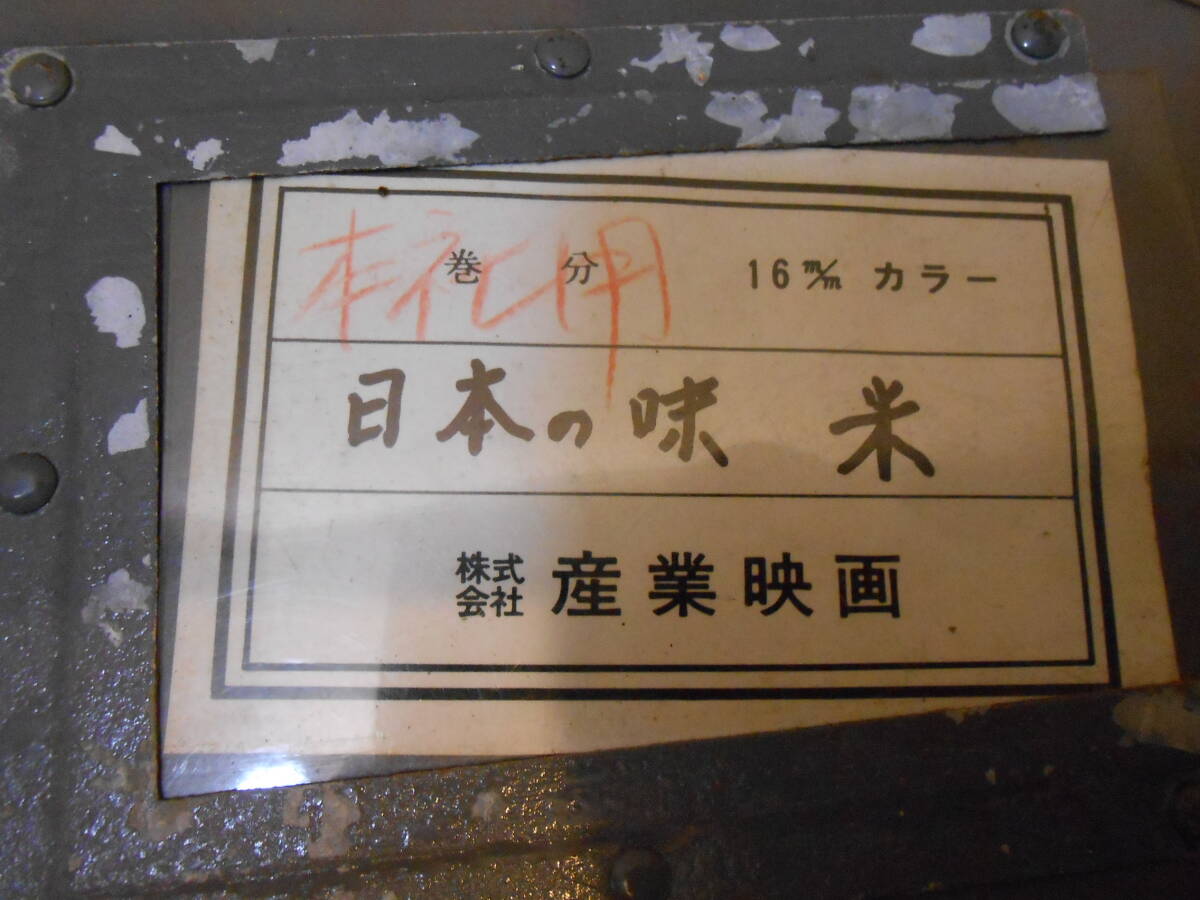 本社用
巻 分 16m/m カラー
日本の味 米
株式会社 産業映画